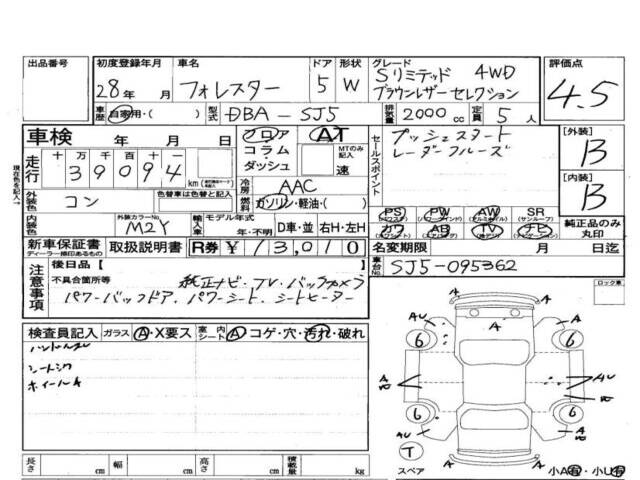 出品番号
初度登録年月
28年 月
車名
フォレスター
ドア 形状
5 W
グレード
Sリミテッド 4WD
ブラウンレザーセレクション
評価点
4.5
車歴 自家用・( )
型式 DBA-SJ5
排気量 2000 cc
定員 5 人
現在色を記入→
車検 年 月 日
フロア AT
コラム MTのみ記入
ダッシュ 速
セールスポイント
プッシュスタート
レーダークルーズ
[外装] B
走行 十 万 千 百 十 一
39094 km
冷房 AAC
[内装] B
外装色 コン
色替車は色替と記入
ガソリン・軽油・( )
PS PW AW SR
(パワステ) (パワーウインド) (アルミホイル) (サンルーフ)
カワ AB TV ナビ
純正品のみ丸印
内装色
外装カラーNo. M2Y
輸入車 モデル年式 年・不明
D車・並 右H・左H
新車保証書 取扱説明書
ディーラー捺印あるもの
R券 ¥13,010
名変期限 月 日迄
車台No. SJ5-095362
注意事項
後日品[ ]
不具合箇所等 純正ナビ・TV・バックカメラ
パワーバックドア、パワーシート、シートヒーター
ロック車
検査員記入 ガラス A・X要ス
室内シート A コゲ・穴・汚れ・破れ
ハンドルスレ
ホイールA
AU A
6 6
A A AU
6 6
AU A
T
スペア A A
小A有・小U有
長さ cm 幅 cm 高さ cm 積載量 kg